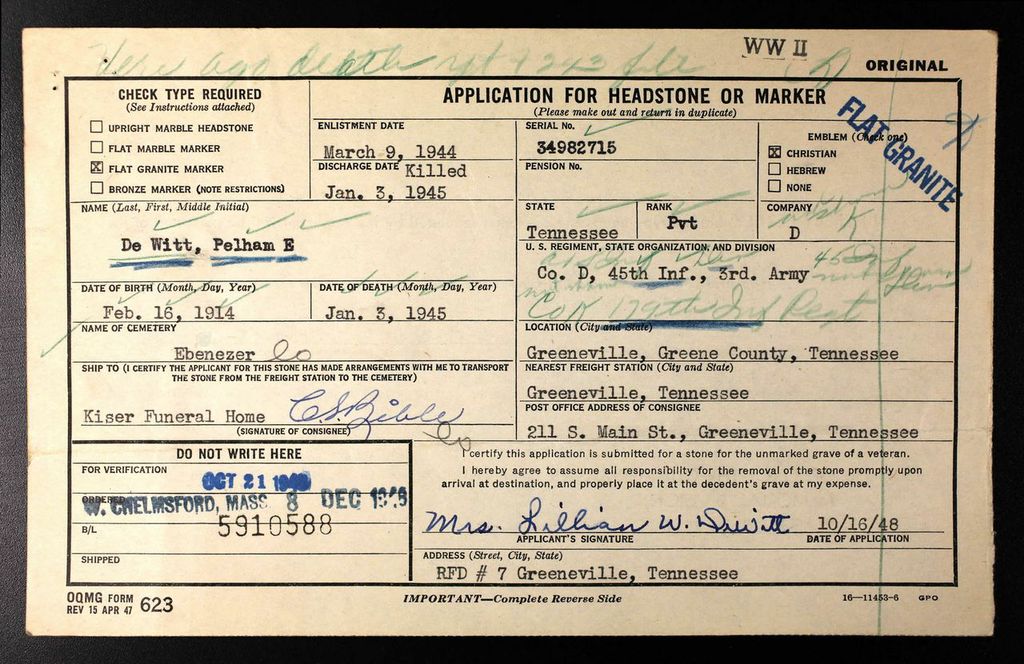 WW II
ORIGINAL
CHECK TYPE REQUIRED
(See Instructions attached)
UPRIGHT MARBLE HEADSTONE
FLAT MARBLE MARKER
☒ FLAT GRANITE MARKER
BRONZE MARKER (NOTE RESTRICTIONS)
APPLICATION FOR HEADSTONE OR MARKER
(Please make out and return in duplicate)
ENLISTMENT DATE
March 9, 1944
DISCHARGE DATE Killed
Jan. 3, 1945
SERIAL No.
34982715
PENSION No.
EMBLEM (Check one)
☒ CHRISTIAN
HEBREW
NONE
FLAT GRANITE
NAME (Last, First, Middle Initial)
De Witt, Pelham E
STATE
Tennessee
RANK
Pvt
COMPANY
K
D
U. S. REGIMENT, STATE ORGANIZATION, AND DIVISION
Co. D, 45th Inf., 3rd. Army
Co K 179th Inf Regt
DATE OF BIRTH (Month, Day, Year)
Feb. 16, 1914
DATE OF DEATH (Month, Day, Year)
Jan. 3, 1945
NAME OF CEMETERY
Ebenezer Co
LOCATION (City and State)
Greeneville, Greene County, Tennessee
SHIP TO (I CERTIFY THE APPLICANT FOR THIS STONE HAS MADE ARRANGEMENTS WITH ME TO TRANSPORT
THE STONE FROM THE FREIGHT STATION TO THE CEMETERY)
Kiser Funeral Home C.S. Bible
Co
(SIGNATURE OF CONSIGNEE)
NEAREST FREIGHT STATION (City and State)
Greeneville, Tennessee
POST OFFICE ADDRESS OF CONSIGNEE
211 S. Main St., Greeneville, Tennessee
DO NOT WRITE HERE
FOR VERIFICATION
OCT 21 1948
ORDERED
W. CHELMSFORD, MASS. 8 DEC 1948
B/L
5910588
SHIPPED
I certify this application is submitted for a stone for the unmarked grave of a veteran.
I hereby agree to assume all responsibility for the removal of the stone promptly upon
arrival at destination, and properly place it at the decedent's grave at my expense.
Mrs. Lillian W. Dewitt 10/16/48
APPLICANT'S SIGNATURE DATE OF APPLICATION
ADDRESS (Street, City, State)
RFD # 7 Greeneville, Tennessee
OQMG FORM
REV 15 APR 47 623
IMPORTANT—Complete Reverse Side
16—11453-6 GPO